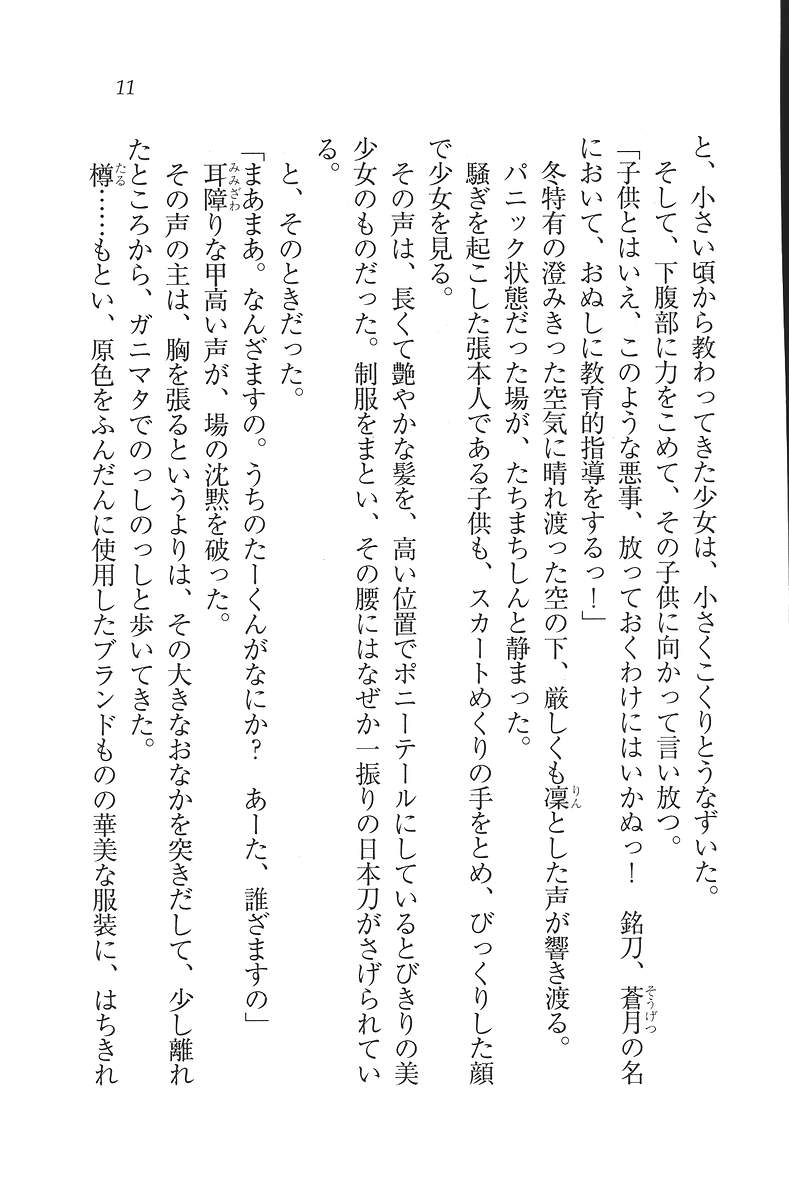 11
と、小さい頃から教わってきた少女は、小さくこくりとうなずいた。
そして、下腹部に力をこめて、その子供に向かって言い放つ。
「子供とはいえ、このような悪事、放っておくわけにはいかぬっ！　銘刀、蒼月の名
そうげつ
において、おぬしに教育的指導をするっ！」
冬特有の澄みきった空気に晴れ渡った空の下、厳しくも凜とした声が響き渡る。
りん
パニック状態だった場が、たちまちしんと静まった。
騒ぎを起こした張本人である子供も、スカートめくりの手をとめ、びっくりした顔
で少女を見る。
その声は、長くて艶やかな髪を、高い位置でポニーテールにしているとびきりの美
少女のものだった。制服をまとい、その腰にはなぜか一振りの日本刀がさげられてい
る。
と、そのときだった。
「まあまあ。なんざますの。うちのたーくんがなにか？　あーた、誰ざますの」
耳障りな甲高い声が、場の沈黙を破った。
みみざわ
その声の主は、胸を張るというよりは、その大きなおなかを突きだして、少し離れ
たところから、ガニマタでのっしのっしと歩いてきた。
樽……もとい、原色をふんだんに使用したブランドものの華美な服装に、はちきれ
たる